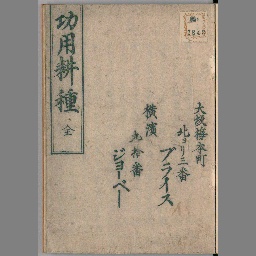 大阪梅本町
北ヨリ三番
プライス
横濱
九拾番
ジョーペー
功用耕種
全